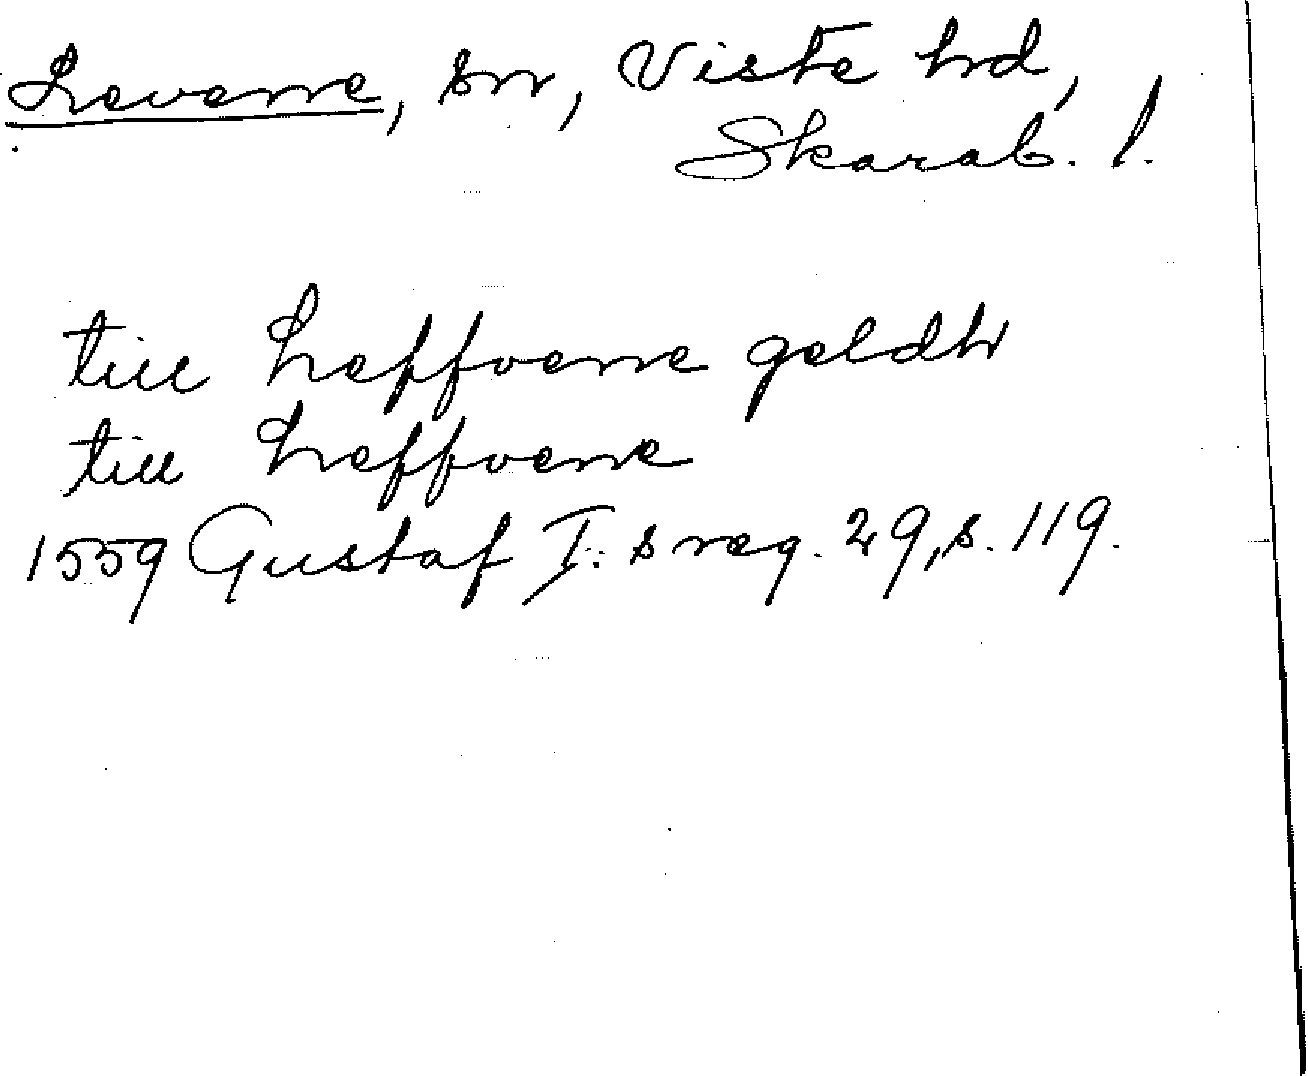 Levene, sn, Viste hd,
Skarab. l.
till Leffvene geldh
till Leffvene
1559 Gustaf I:s reg. 29, s. 119.